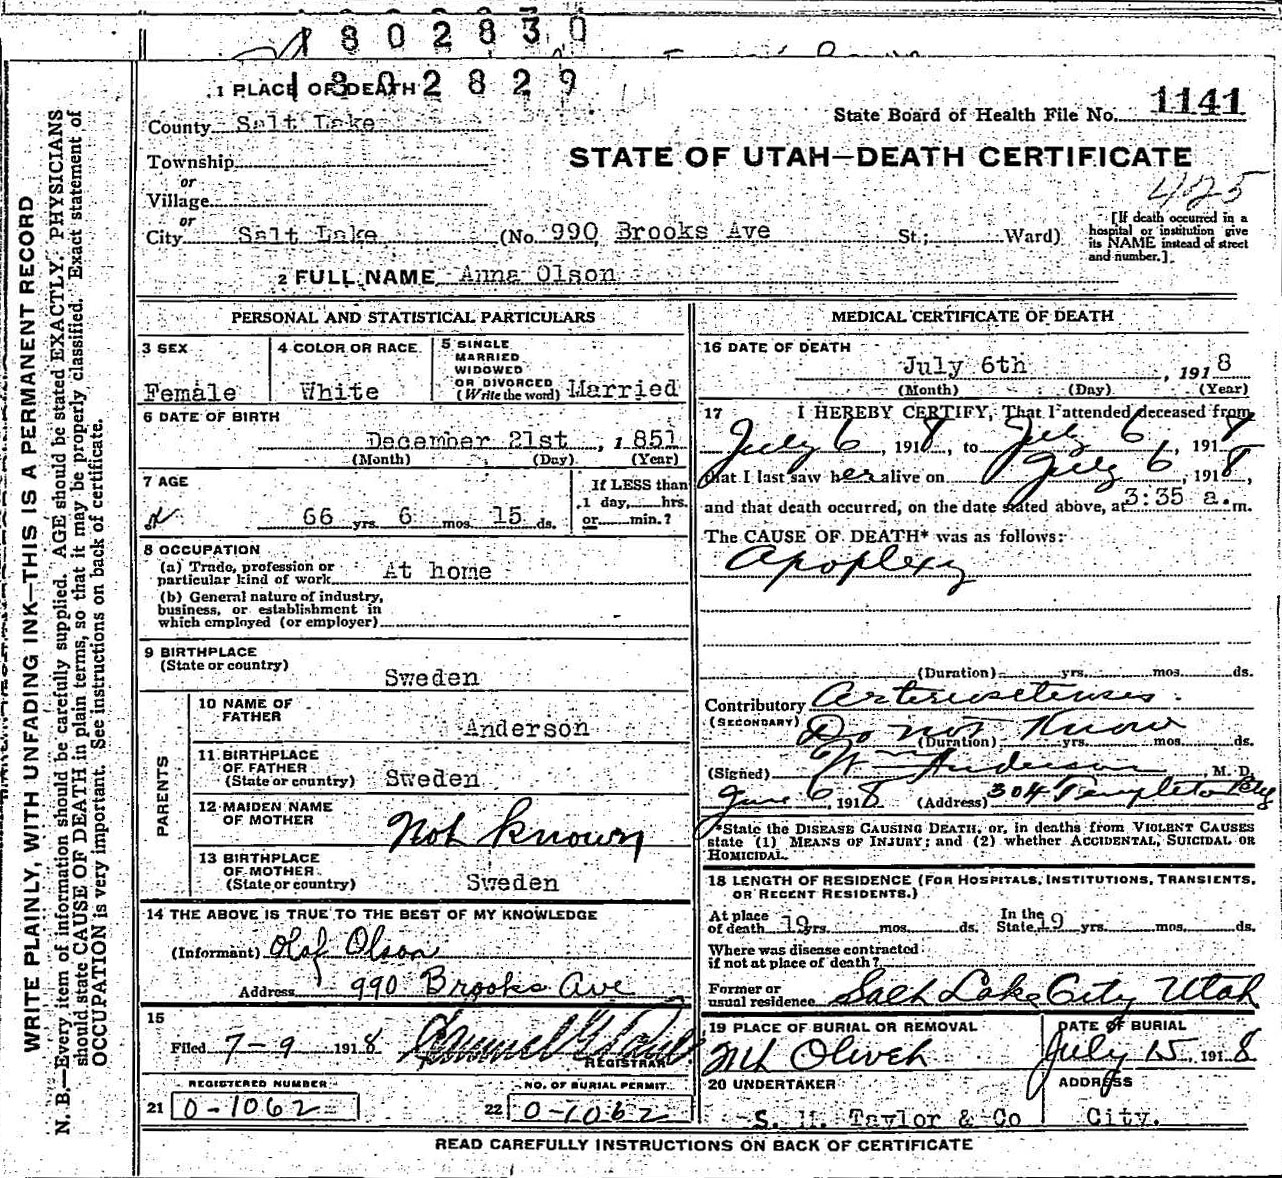 1802830
1302829
1 PLACE OF DEATH
State Board of Health File No. 1141
County Salt Lake
STATE OF UTAH—DEATH CERTIFICATE
Township
or
Village
425
or
City Salt Lake (No. 990 Brooks Ave St.; Ward)
[If death occurred in a
hospital or institution give
its NAME instead of street
and number.]
2 FULL NAME Anna Olson
PERSONAL AND STATISTICAL PARTICULARS
3 SEX
Female
4 COLOR OR RACE
White
5 SINGLE
MARRIED
WIDOWED
OR DIVORCED
(Write the word) Married
6 DATE OF BIRTH
December 21st, 1851
(Month) (Day) (Year)
7 AGE
66 yrs. 6 mos. 15 ds.
If LESS than
1 day, hrs.
or min.?
8 OCCUPATION
(a) Trade, profession or
particular kind of work At home
(b) General nature of industry,
business, or establishment in
which employed (or employer)
9 BIRTHPLACE
(State or country)
Sweden
PARENTS
10 NAME OF
FATHER
Anderson
11 BIRTHPLACE
OF FATHER
(State or country) Sweden
12 MAIDEN NAME
OF MOTHER
Not known
13 BIRTHPLACE
OF MOTHER
(State or country) Sweden
14 THE ABOVE IS TRUE TO THE BEST OF MY KNOWLEDGE
(Informant) Olof Olson
Address 990 Brooks Ave
15
Filed 7-9 1918
REGISTRAR
REGISTERED NUMBER
21 0-1062
NO. OF BURIAL PERMIT
22 0-1062
MEDICAL CERTIFICATE OF DEATH
16 DATE OF DEATH
July 6th, 1918
(Month) (Day) (Year)
17 I HEREBY CERTIFY, That I attended deceased from
July 6, 1918, to July 6, 1918
that I last saw her alive on July 6, 1918,
and that death occurred, on the date stated above, at 3:35 a.m.
The CAUSE OF DEATH* was as follows:
Apoplexy
(Duration) yrs. mos. ds.
Contributory
(SECONDARY) Do not Know
(Duration) yrs. mos. ds.
(Signed) Anderson, M. D.
June 6, 1918 (Address) 304 Templeton Bldg
*State the DISEASE CAUSING DEATH, or, in deaths from VIOLENT CAUSES
state (1) MEANS OF INJURY; and (2) whether ACCIDENTAL, SUICIDAL OR
HOMICIDAL.
18 LENGTH OF RESIDENCE (FOR HOSPITALS, INSTITUTIONS, TRANSIENTS,
OR RECENT RESIDENTS.)
At place
of death 19 yrs. mos. ds.
In the
State 19 yrs. mos. ds.
Where was disease contracted
if not at place of death?
Former or
usual residence Salt Lake City Utah
19 PLACE OF BURIAL OR REMOVAL
Mt Olivet
DATE OF BURIAL
July 15, 1918
20 UNDERTAKER
S. M. Taylor & Co
ADDRESS
City.
READ CAREFULLY INSTRUCTIONS ON BACK OF CERTIFICATE
WRITE PLAINLY, WITH UNFADING INK—THIS IS A PERMANENT RECORD
N. B.—Every item of information should be carefully supplied. AGE should be stated EXACTLY. PHYSICIANS
should state CAUSE OF DEATH in plain terms, so that it may be properly classified. Exact statement of
OCCUPATION is very important. See instructions on back of certificate.